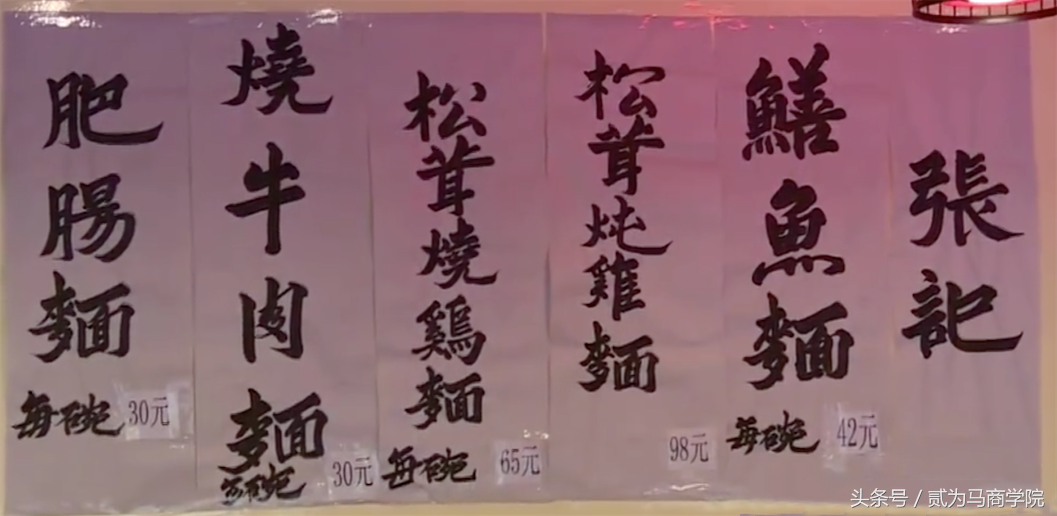 張記
鱔魚麵
每碗 42元
松茸炖雞麵
98元
松茸燒鷄麵
每碗 65元
燒牛肉麵
每碗 30元
肥腸麵
每碗 30元
头条号 / 贰为马商学院